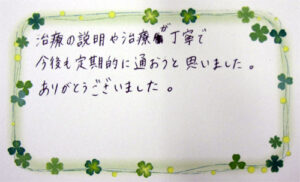 治療の説明や治療が丁寧で
今後も定期的に通おうと思いました。
ありがとうございました。